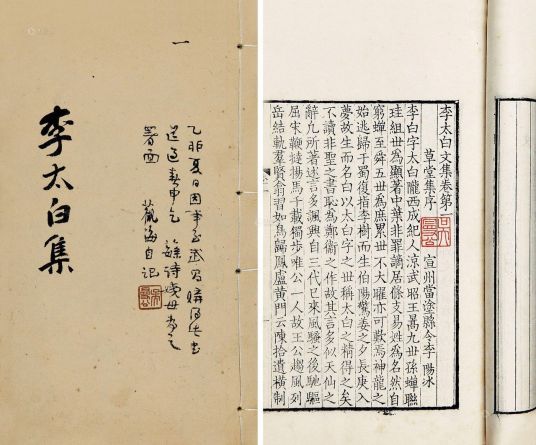 一
李太白集
夏日因事至
署面 自記
李太白文集卷第一
草堂集序
宣州當塗縣令李陽冰
李白字太白隴西成紀人涼武昭王暠九世孫蟬聯
珪組世爲顯著中葉非罪謫居條支易姓爲名然自
窮蟬至舜五世爲庶累世不大曜亦可歎焉神龍之
始逃歸于蜀復指李樹而生伯陽驚姜之夕長庚入
夢故生而名白以太白字之世稱太白之精得之矣
不讀非聖之書恥爲鄭衛之作故其言多似天仙之
辭凡所著述言多諷興自三代已來風騷之後馳驅
屈宋鞭撻揚馬千載獨步唯公一人故王公趨風列
岳結軌羣賢翕習如鳥歸鳳盧黃門云陳拾遺橫制